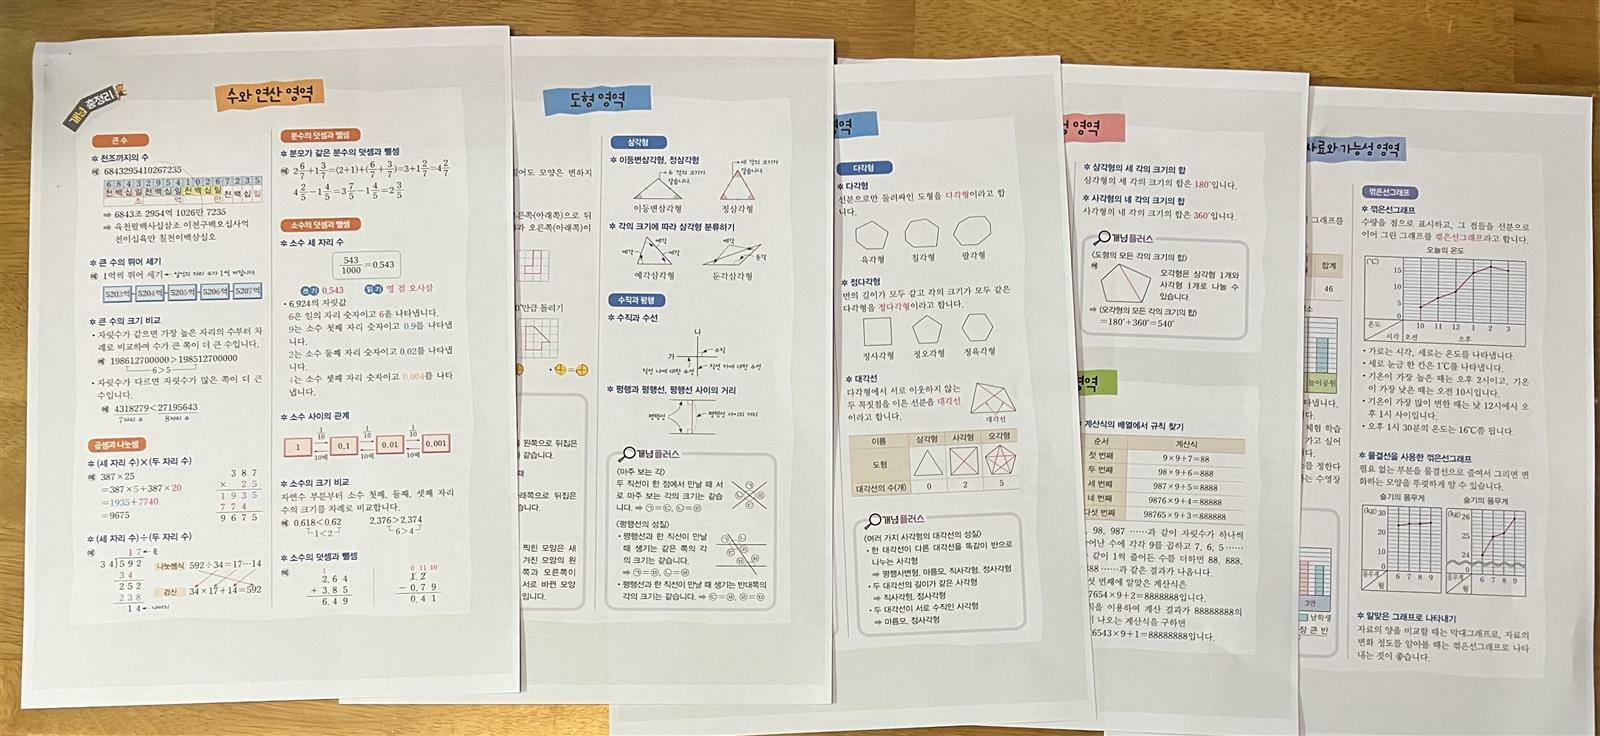 개념 총정리
수와 연산 영역
큰 수
✲ 천조까지의 수
예 6843295410267235
6 8 4 3 2 9 5 4 1 0 2 6 7 2 3 5
천 백 십 일 천 백 십 일 천 백 십 일 천 백 십 일
조 억 만
⇨ 6843조 2954억 1026만 7235
⇨ 육천팔백사십삼조 이천구백오십사억
천이십육만 칠천이백삼십오
✲ 큰 수의 뛰어 세기
예 1억씩 뛰어 세기 ← 일억의 자리 수가 1씩 커집니다.
5203억 5204억 5205억 5206억 5207억
✲ 큰 수의 크기 비교
• 자릿수가 같으면 가장 높은 자리의 수부터 차
례로 비교하여 수가 큰 쪽이 더 큰 수입니다.
예 198612700000 > 198512700000
6>5
• 자릿수가 다르면 자릿수가 많은 쪽이 더 큰
수입니다.
예 4318279 < 27195643
7자리 수 8자리 수
곱셈과 나눗셈
✲ (세 자리 수)×(두 자리 수)
예 387×25
=387×5+387×20
=1935+7740
=9675
3 8 7
× 2 5
1 9 3 5
7 7 4
9 6 7 5
✲ (세 자리 수)÷(두 자리 수)
예
1 7 ← 몫
3 4 ) 5 9 2
3 4
2 5 2
2 3 8
1 4 ← 나머지
나눗셈식 592÷34=17…14
검산 34×17+14=592
분수의 덧셈과 뺄셈
✲ 분모가 같은 분수의 덧셈과 뺄셈
예 2 6/7 + 1 3/7 = (2+1)+(6/7 + 3/7) = 3+1 2/7 = 4 2/7
4 2/5 − 1 4/5 = 3 7/5 − 1 4/5 = 2 3/5
소수의 덧셈과 뺄셈
✲ 소수 세 자리 수
543/1000 = 0.543
쓰기 0.543 읽기 영 점 오사삼
• 6.924의 자릿값
6은 일의 자리 숫자이고 6을 나타냅니다.
9는 소수 첫째 자리 숫자이고 0.9를 나타냅
니다.
2는 소수 둘째 자리 숫자이고 0.02를 나타냅
니다.
4는 소수 셋째 자리 숫자이고 0.004를 나타
냅니다.
✲ 소수 사이의 관계
1/10 1/10 1/10
1 0.1 0.01 0.001
10배 10배 10배
✲ 소수의 크기 비교
자연수 부분부터 소수 첫째, 둘째, 셋째 자리
수의 크기를 차례로 비교합니다.
예 0.618<0.62 2.376>2.374
1<2 6>4
✲ 소수의 덧셈과 뺄셈
예
1
2.6 4
+ 3.8 5
6.4 9
0 11 10
1.2
− 0.7 9
0.4 1
도형 영역
어도 모양은 변하지
른쪽(아래쪽)으로 뒤
과 오른쪽(아래쪽)이
만큼 돌리기
왼쪽으로 뒤집은
같습니다.
래쪽으로 뒤집은
습니다.
찍힌 모양은 새
겨진 모양의 왼
쪽과 오른쪽이
서로 바뀐 모양
입니다.
삼각형
✲ 이등변삼각형, 정삼각형
두 각의 크기가
같습니다.
세 각의 크기가
같습니다.
이등변삼각형 정삼각형
✲ 각의 크기에 따라 삼각형 분류하기
예각 예각 예각 둔각
예각삼각형 둔각삼각형
수직과 평행
✲ 수직과 수선
나
가
수직
직선 나에 대한 수선
직선 가에 대한 수선
✲ 평행과 평행선, 평행선 사이의 거리
평행선 평행선 사이의 거리
개념플러스
〈마주 보는 각〉
두 직선이 한 점에서 만날 때 서
로 마주 보는 각의 크기는 같습
니다. ⇨ ㉠=㉢, ㉡=㉣
〈평행선의 성질〉
• 평행선과 한 직선이 만날
때 생기는 같은 쪽의 각
의 크기는 같습니다.
• 평행선과 한 직선이 만날 때 생기는 반대쪽의
각의 크기는 같습니다.
영역
다각형
✲ 다각형
선분으로만 둘러싸인 도형을 다각형이라고 합
니다.
육각형 칠각형 팔각형
✲ 정다각형
변의 길이가 모두 같고 각의 크기가 모두 같은
다각형을 정다각형이라고 합니다.
정사각형 정오각형 정육각형
✲ 대각선
다각형에서 서로 이웃하지 않는
두 꼭짓점을 이은 선분을 대각선
이라고 합니다.
대각선
이름 삼각형 사각형 오각형
도형
대각선의 수(개) 0 2 5
개념플러스
〈여러 가지 사각형의 대각선의 성질〉
• 한 대각선이 다른 대각선을 똑같이 반으로
나누는 사각형
⇨ 평행사변형, 마름모, 직사각형, 정사각형
• 두 대각선의 길이가 같은 사각형
⇨ 직사각형, 정사각형
• 두 대각선이 서로 수직인 사각형
⇨ 마름모, 정사각형
영역
✲ 삼각형의 세 각의 크기의 합
삼각형의 세 각의 크기의 합은 180°입니다.
✲ 사각형의 네 각의 크기의 합
사각형의 네 각의 크기의 합은 360°입니다.
개념플러스
〈도형의 모든 각의 크기의 합〉
예
오각형은 삼각형 1개와
사각형 1개로 나눌 수
있습니다.
⇨ (오각형의 모든 각의 크기의 합)
=180°+360°=540°
영역
✲ 계산식의 배열에서 규칙 찾기
순서 계산식
첫 번째 9×9+7=88
두 번째 98×9+6=888
세 번째 987×9+5=8888
네 번째 9876×9+4=88888
다섯 번째 98765×9+3=888888
, 98, 987 ……과 같이 자릿수가 하나씩
어난 수에 각각 9를 곱하고 7, 6, 5 ……
같이 1씩 줄어든 수를 더하면 88, 888,
88 ……과 같은 결과가 나옵니다.
섯 번째에 알맞은 계산식은
7654×9+2=8888888입니다.
칙을 이용하여 계산 결과가 88888888의
이 나오는 계산식을 구하면
6543×9+1=88888888입니다.
자료와 가능성 영역
그래프를
합계
46
놀이공원
타냅니다.
체험 학습
가고 싶어
를 정한다
는 수영장
3반
남학생
장 큰 반
꺾은선그래프
✲ 꺾은선그래프
수량을 점으로 표시하고, 그 점들을 선분으로
이어 그린 그래프를 꺾은선그래프라고 합니다.
오늘의 온도
(℃)
15
10
5
0
온도
시각 오전 오후
10 11 12 1 2 3
• 가로는 시각, 세로는 온도를 나타냅니다.
• 세로 눈금 한 칸은 1℃를 나타냅니다.
• 기온이 가장 높은 때는 오후 2시이고, 기온
이 가장 낮은 때는 오전 10시입니다.
• 기온이 가장 많이 변한 때는 낮 12시에서 오
후 1시 사이입니다.
• 오후 1시 30분의 온도는 16℃쯤 됩니다.
✲ 물결선을 사용한 꺾은선그래프
필요 없는 부분을 물결선으로 줄여서 그리면 변
화하는 모양을 뚜렷하게 알 수 있습니다.
슬기의 몸무게 슬기의 몸무게
(kg) 30
20
10
0
몸무게
월 6 7 8 9
(kg) 26
25
24
0
몸무게
월 6 7 8 9
✲ 알맞은 그래프로 나타내기
자료의 양을 비교할 때는 막대그래프로, 자료의
변화 정도를 알아볼 때는 꺾은선그래프로 나타
내는 것이 좋습니다.